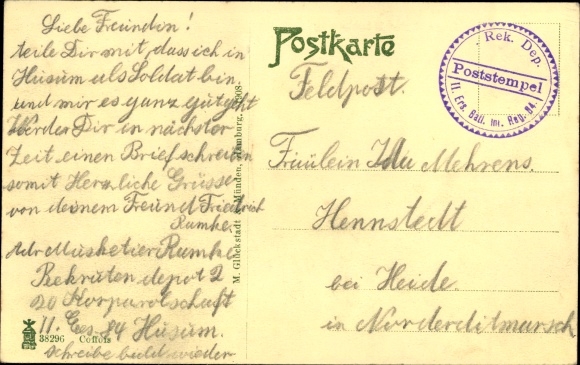 Liebe Freundin!
teile Dir mit, dass ich in
Husum als Soldat bin
und mir es ganz gut geht
Werder Dir in nächster
Zeit einen Brief schreiben
somit Herzliche Grüsse
von deinem Freund Friedrich
Rumke
Adr Musketier Rumke
Rekruten depot 2
20 Korporalschaft
II. Ers 84 Husum.
schreibe bald wieder
38296
M. Glückstadt & Münden, Hamburg. 1908.
Postkarte
Feldpost.
Rek. Dep.
Poststempel
II. Ers. Batl. Inf. Reg. 84.
Fräulein Ida Mehrens.
Hennstedt
bei Heide.
in Norderditmarsch